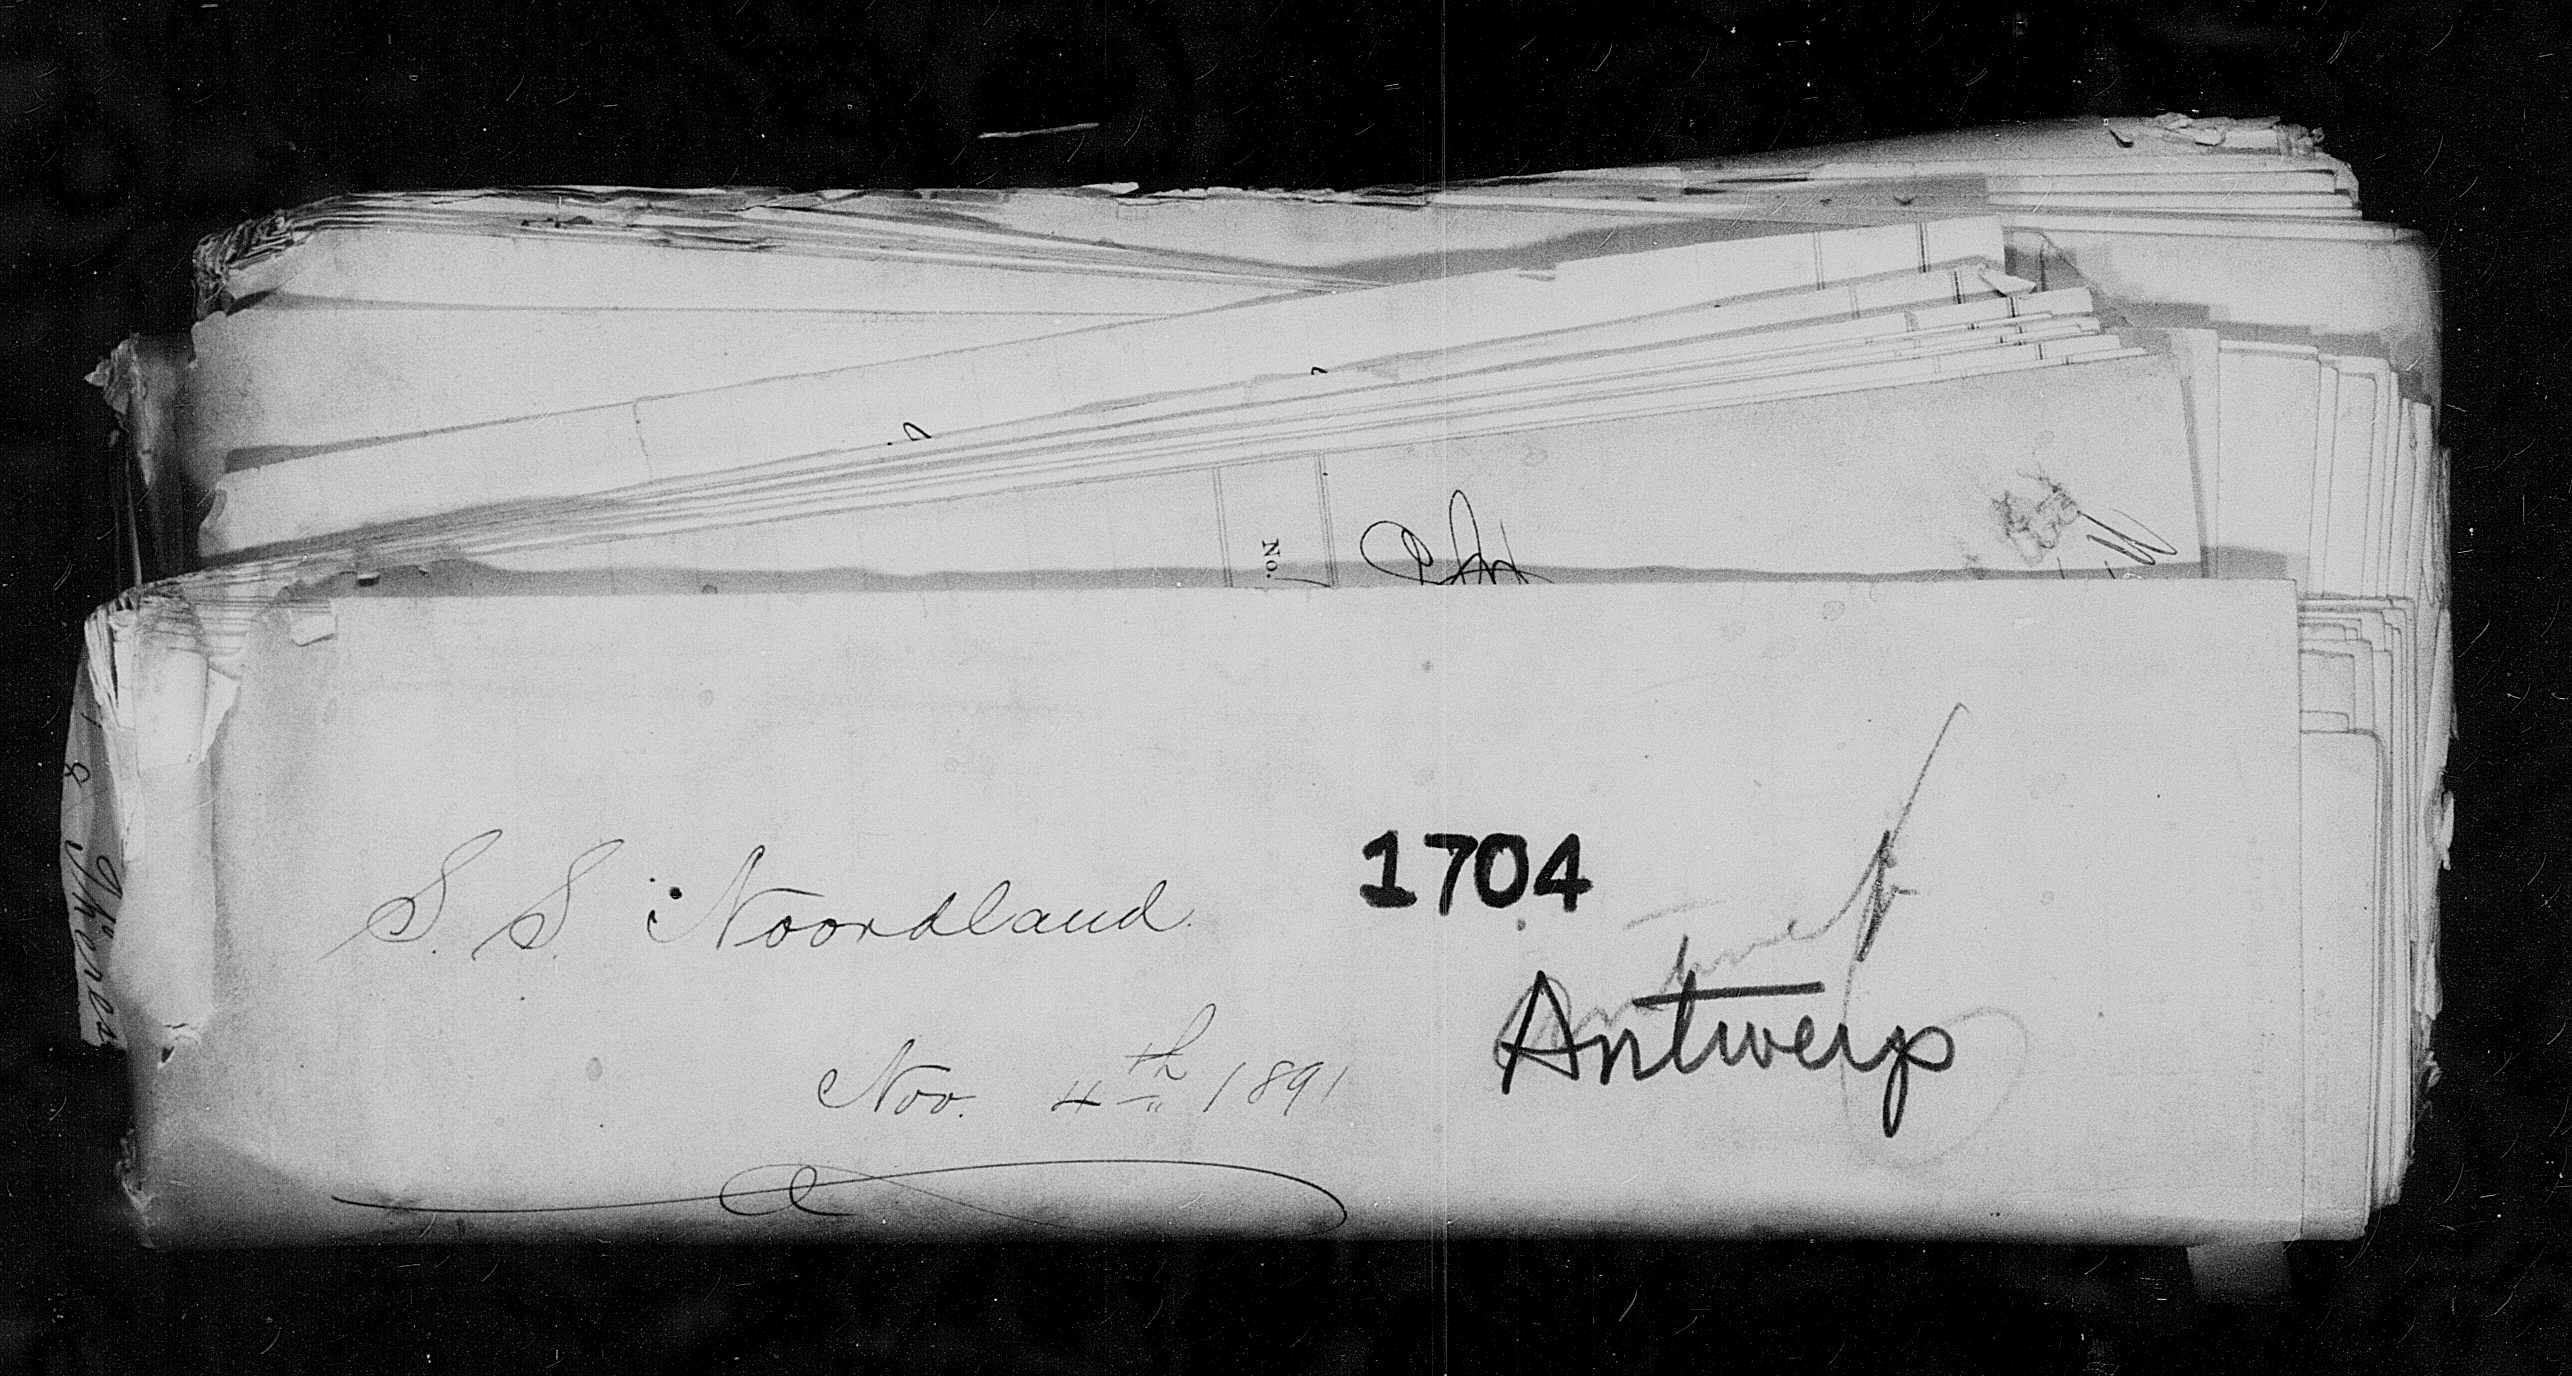 No.
S. S. Noordland.
1704
Antwerp
Antwerp
Nov. 4th 1891